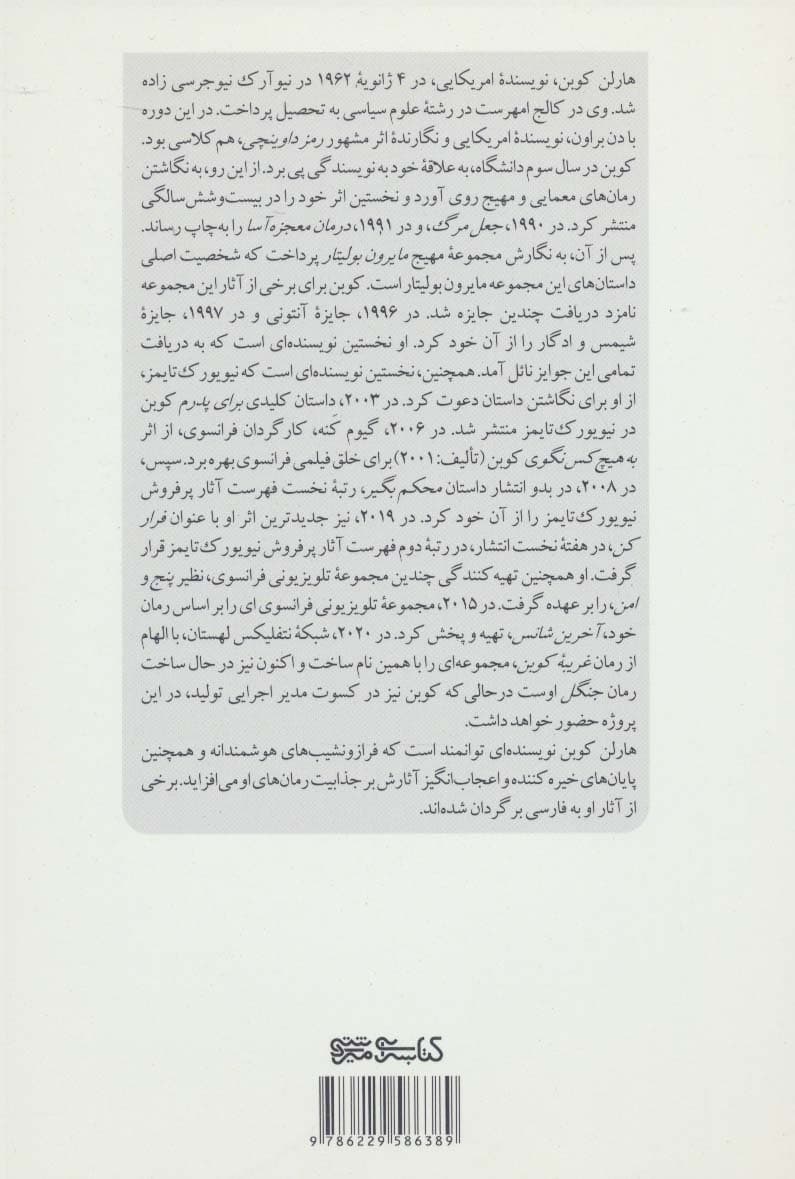 هارلن کوبن، نویسندهٔ امریکایی، در ۴ ژانویهٔ ۱۹۶۲ در نیوآرک نیوجرسی زاده
شد. وی در کالج امهرست در رشتهٔ علوم سیاسی به تحصیل پرداخت. در این دوره
با دن براون، نویسندهٔ امریکایی و نگارندهٔ اثر مشهور رمز داوینچی، هم کلاسی بود.
کوبن در سال سوم دانشگاه، به علاقهٔ خود به نویسندگی پی برد. از این رو، به نگاشتن
رمان‌های معمایی و مهیج روی آورد و نخستین اثر خود را در بیست‌وشش‌سالگی
منتشر کرد. در ۱۹۹۰، جعل مرگ، و در ۱۹۹۱، درمان معجزه‌آسا را به‌چاپ رساند.
پس از آن، به نگارش مجموعهٔ مهیج مایرون بولیتار پرداخت که شخصیت اصلی
داستان‌های این مجموعه مایرون بولیتار است. کوبن برای برخی از آثار این مجموعه
نامزد دریافت چندین جایزه شد. در ۱۹۹۶، جایزهٔ آنتونی و در ۱۹۹۷، جایزهٔ
شیمس و ادگار را از آن خود کرد. او نخستین نویسنده‌ای است که به دریافت
تمامی این جوایز نائل آمد. همچنین، نخستین نویسنده‌ای است که نیویورک‌تایمز،
از او برای نگاشتن داستان دعوت کرد. در ۲۰۰۳، داستان کلیدی برای پدرم کوبن
در نیویورک‌تایمز منتشر شد. در ۲۰۰۶، گیوم کَنه، کارگردان فرانسوی، از اثر
به هیچ کس نگوی کوبن (تألیف: ۲۰۰۱) برای خلق فیلمی فرانسوی بهره برد. سپس،
در ۲۰۰۸، در بدو انتشار داستان محکم بگیر، رتبهٔ نخست فهرست آثار پرفروش
نیویورک‌تایمز را از آن خود کرد. در ۲۰۱۹، نیز جدیدترین اثر او با عنوان فرار
کن، در هفتهٔ نخست انتشار، در رتبهٔ دوم فهرست آثار پرفروش نیویورک‌تایمز قرار
گرفت. او همچنین تهیه‌کنندگی چندین مجموعهٔ تلویزیونی فرانسوی، نظیر پنج و
امن، را بر عهده گرفت. در ۲۰۱۵، مجموعهٔ تلویزیونی فرانسوی ای را بر اساس رمان
خود، آخرین شانس، تهیه و پخش کرد. در ۲۰۲۰، شبکهٔ نتفلیکس لهستان، با الهام
از رمان غریبهٔ کوبن، مجموعه‌ای را با همین نام ساخت و اکنون نیز در حال ساخت
رمان جنگل اوست درحالی که کوبن نیز در کسوت مدیر اجرایی تولید، در این
پروژه حضور خواهد داشت.
هارلن کوبن نویسنده‌ای توانمند است که فرازونشیب‌های هوشمندانه و همچنین
پایان‌های خیره‌کننده و اعجاب‌انگیز آثارش بر جذابیت رمان‌های او می‌افزاید. برخی
از آثار او به فارسی برگردان شده‌اند.
کتابسرای میردشتی
9 786229 586389